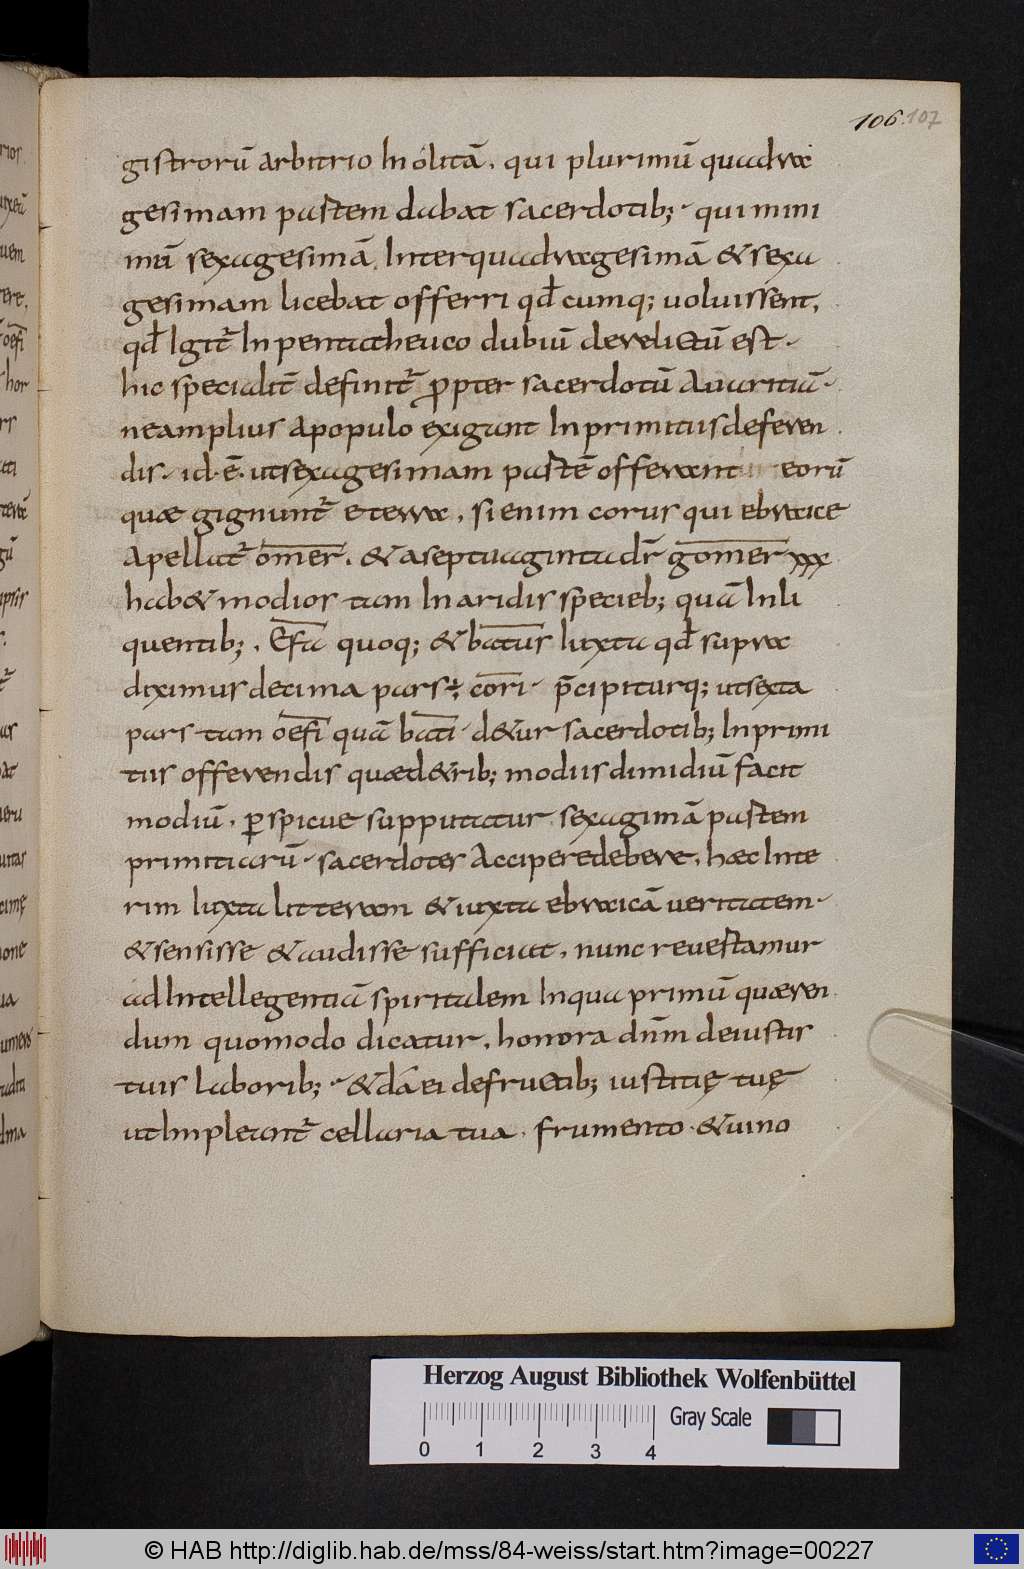 106 107
gistrorū arbitrio In olitā. qui plurimū quadra
gesimam partem dabat sacerdotib; · qui mini
mū sexagesimā. Interquadragesimā & sexa
gesimam licebat offerri qđ cumq; uoluissent.
qđ Igit̄ In pentatheuco dubiū derelictū est ·
hic specialit̄ definit̄ ꝓpter sacerdotū Auaritiā ·
neamplius Apopulo exigant Inprimitiis deferen
dis · id · ē · utsexagesimam partē offerant eorū
quæ gignunt̄ eterra. si enim corus qui ebraice
Apellat̄ om̄er. & aseptuaginta dr̄ gom̄er xxx
hab& modios tam In aridis specieb; quā Inli
quentib; . Efa quoq; & batus Iuxta qđ supra
diximus decima pars ÷ cori · p̄cipiturq; utsexta
pars tam oefi quā bati · d&ur sacerdotib; Inprimi
tiis offerendis quæd&rib; modiis dimidiū facit
modiū. ꝑspicue supputatur sexagimā partem
primitiarū · sacerdotes Accipere debere. hæc Inte
rim Iuxta litteram & iuxta ebraicā ueritatem ·
& sensisse & audisse sufficiat. nunc reuestamur
ad Intellegentiā spiritalem In qua primū quæren
dum quomodo dicatur. honora dn̄m deiustis
tuis laborib; · & da ei defructib; iustitię tuę
ut Impleant̄ cellaria tua. frumento · & uino
Herzog August Bibliothek Wolfenbüttel
0 1 2 3 4 Gray Scale
© HAB http://diglib.hab.de/mss/84-weiss/start.htm?image=00227